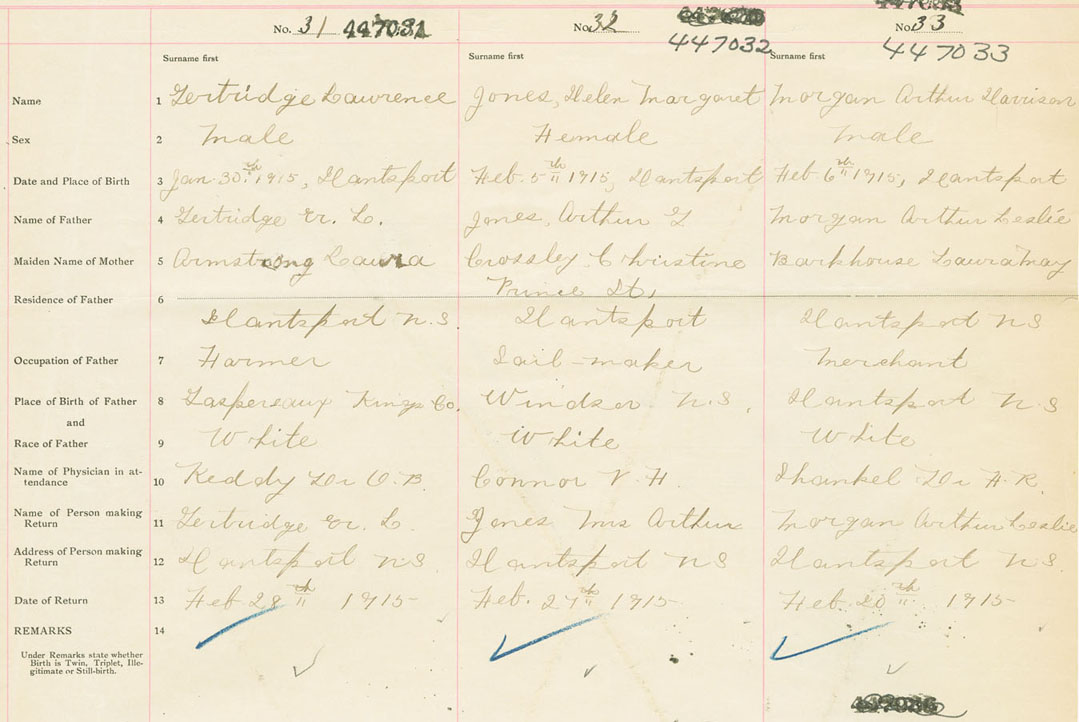 No. 31 447031 No. 32 447032 No. 33 447033
Surname first Surname first Surname first
Name 1 Gertridge Lawrence Jones, Helen Margaret Morgan Arthur Harrison
Sex 2 Male Female Male
Date and Place of Birth 3 Jan. 30th 1915, Hantsport Feb. 5th 1915, Hantsport Feb. 6th 1915, Hantsport
Name of Father 4 Gertridge Er. L. Jones, Arthur G Morgan Arthur Leslie
Maiden Name of Mother 5 Armstrong Laura Crossley Christine Barkhouse Laura May
Residence of Father 6 Prince St,
Hantsport N.S Hantsport Hantsport N S
Occupation of Father 7 Farmer Sail-maker Merchant
Place of Birth of Father 8 Gaspereaux Kings Co. Windsor N.S, Hantsport N S
and
Race of Father 9 White White White
Name of Physician in at-
tendance 10 Keddy Dr O.B. Connor V.H. Shankel Dr F.R.
Name of Person making
Return 11 Gertridge Er. L. Jones Mrs Arthur Morgan Arthur Leslie
Address of Person making
Return 12 Hantsport N.S Hantsport N S Hantsport N S
Date of Return 13 Feb 28th 1915 Feb. 27th 1915 Feb. 20th 1915
REMARKS 14
Under Remarks state whether
Birth is Twin, Triplet, Ille-
gitimate or Still-birth.